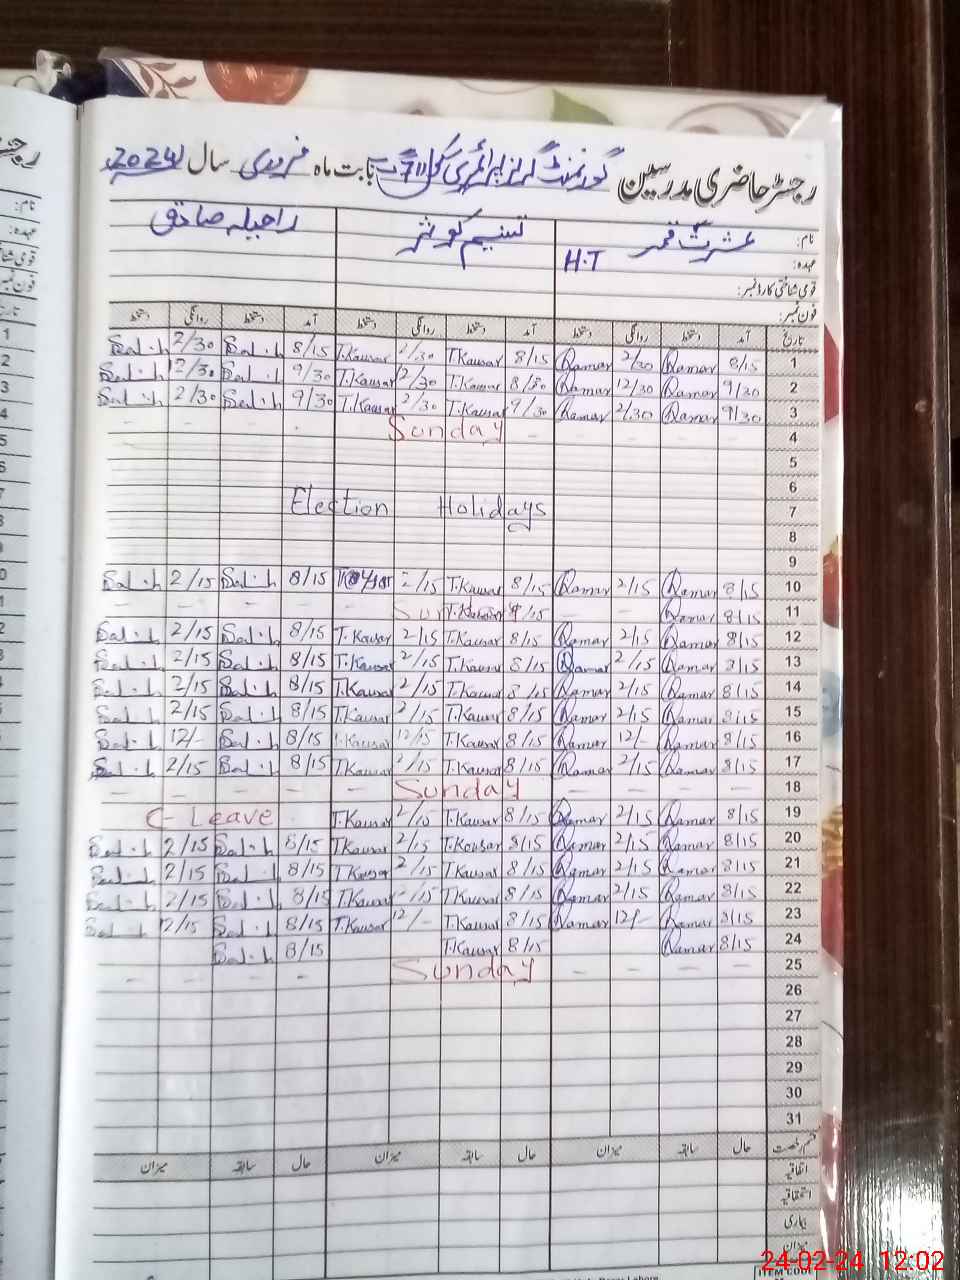 رجسٹر حاضری مدرسین گورنمنٹ گرلز پرائمری سکول 71 بابت ماہ فروری سال 2024
نام: عشرت قمر تسنیم کوثر راحیلہ صادق
عہدہ: H.T
قومی شناختی کارڈ نمبر:
فون نمبر:
تاریخ آمد دستخط روانگی دستخط آمد دستخط روانگی دستخط آمد دستخط روانگی دستخط
2/30 8/15 T.Kausar 2/30 T.Kausar 8/15 Qamar 2/30 Qamar 8/15 1
2/30 9/30 T.Kausar 2/30 T.Kausar 8/30 Qamar 12/30 Qamar 9/30 2
2/30 9/30 T.Kausar 2/30 T.Kausar 9/30 Qamar 2/30 Qamar 9/30 3
Sunday 4
5
6
Election Holidays 7
8
9
2/15 8/15 2/15 T.Kausar 8/15 Qamar 2/15 Qamar 8/15 10
Qamar 8/15 11
2/15 8/15 T.Kausar 2/15 T.Kausar 8/15 Qamar 2/15 Qamar 8/15 12
2/15 8/15 T.Kausar 2/15 T.Kausar 8/15 Qamar 2/15 Qamar 8/15 13
2/15 8/15 T.Kausar 2/15 T.Kausar 8/15 Qamar 2/15 Qamar 8/15 14
2/15 8/15 T.Kausar 2/15 T.Kausar 8/15 Qamar 2/15 Qamar 8/15 15
12/- 8/15 T.Kausar 12/15 T.Kausar 8/15 Qamar 12/- Qamar 8/15 16
2/15 8/15 T.Kausar 2/15 T.Kausar 8/15 Qamar 2/15 Qamar 8/15 17
Sunday 18
C-Leave T.Kausar 2/15 T.Kausar 8/15 Qamar 2/15 Qamar 8/15 19
2/15 8/15 T.Kausar 2/15 T.Kausar 8/15 Qamar 2/15 Qamar 8/15 20
2/15 8/15 T.Kausar 2/15 T.Kausar 8/15 Qamar 2/15 Qamar 8/15 21
2/15 8/15 T.Kausar 2/15 T.Kausar 8/15 Qamar 2/15 Qamar 8/15 22
12/15 8/15 T.Kausar 12/- T.Kausar 8/15 Qamar 12/- Qamar 8/15 23
8/15 T.Kausar 8/15 Qamar 8/15 24
Sunday 25
26
27
28
29
30
31
قسم رخصت حال سابقہ میزان حال سابقہ میزان حال سابقہ میزان
اتفاقیہ
استحقاقیہ
بیماری
میزان
24-02-24 12:02
ITEM CODE